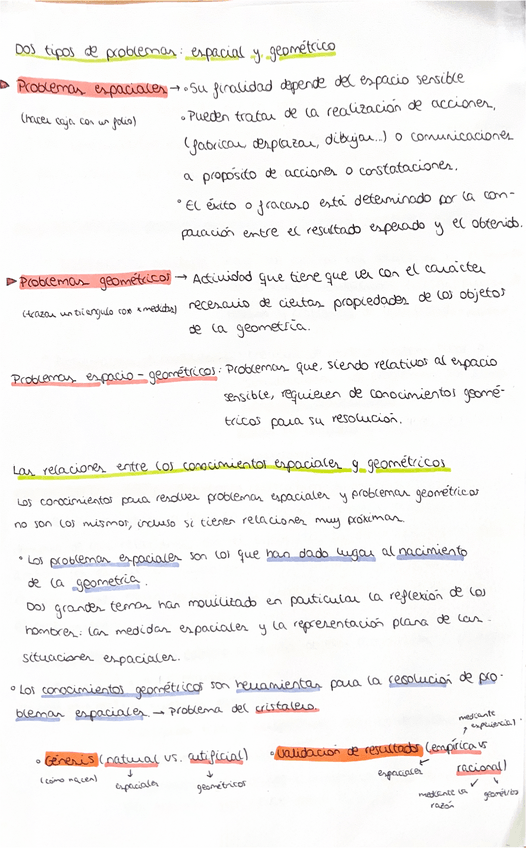 Dos tipos de problemas: espacial y geométrico
Problemas espaciales → • Su finalidad depende del espacio sensible
(hacer caja con un folio)
• Pueden tratar de la realización de acciones,
(fabricar, desplazar, dibujar...) o comunicaciones
a propósito de acciones o constataciones.
• El éxito o fracaso está determinado por la com-
paración entre el resultado esperado y el obtenido.
Problemas geométricos → Actividad que tiene que ver con el carácter
(trazar un triangulo con medidas)
necesario de ciertas propiedades de los objetos
de la geometría.
Problemas espacio-geométricos: Problemas que, siendo relativos al espacio
sensible, requieren de conocimientos geomé-
tricos para su resolución.
Las relaciones entre los conocimientos espaciales y geométricos
Los conocimientos para resolver problemas espaciales y problemas geométricos
no son los mismos, incluso si tienen relaciones muy próximas.
• Los problemas espaciales son los que han dado lugar al nacimiento
de la geometría.
Dos grandes temas han movilitado en particular la reflexión de los
hombres: las medidas espaciales y la representación plana de las
situaciones espaciales.
• Los conocimientos geométricos son herramientas para la resolución de pro-
blemas espaciales → Problema del cristalero.
mediante
experiencia
• Génesis (natural vs. artificial) • Validación de resultados (empírica vs
(cómo nacen) espaciales geométricos espaciales racional)
mediante la geométrico
razón